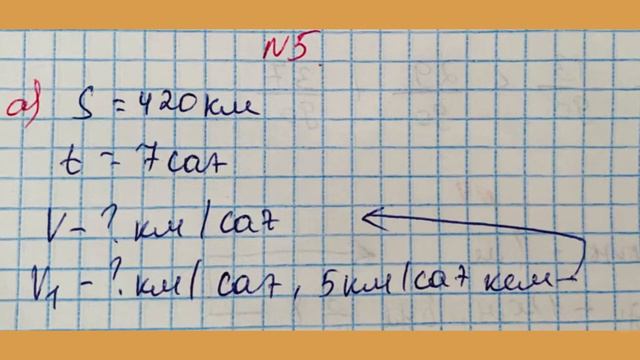 N5
а) S = 420 км
t = 7 саг
V - ? км/саг
V₁ - ? км/саг, 5 км/саг кем